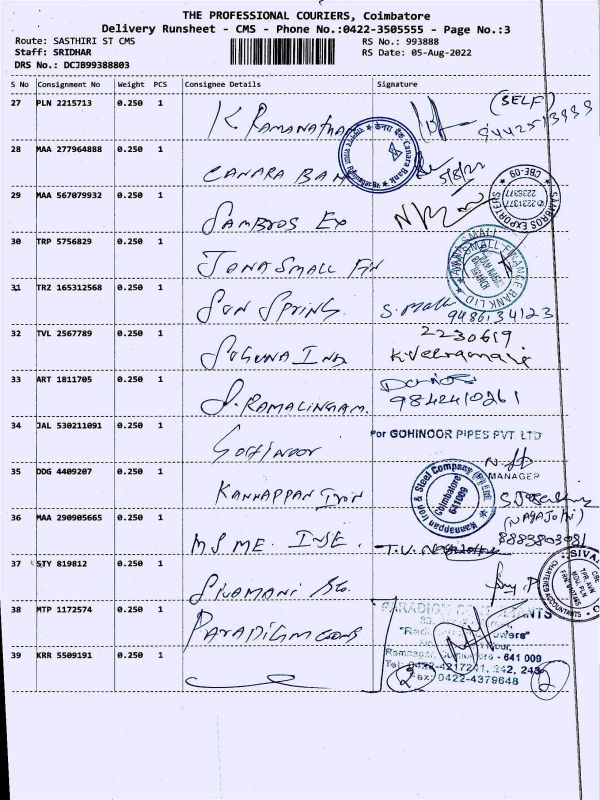 THE PROFESSIONAL COURIERS, Coimbatore
Delivery Runsheet - CMS - Phone No.:0422-3505555 - Page No.:3
Route: SASTHIRI ST CMS
RS No.: 993888
Staff: SRIDHAR
RS Date: 05-Aug-2022
DRS No.: DCJB99388803
S No Consignment No Weight PCS Consignee Details Signature
27 PLN 2215713 0.250 1 K RAMANATHAN (SELF)
28 MAA 277964888 0.250 1 CANARA BANK 5/8/22
Canara Bank
29 MAA 567079932 0.250 1 SAMBROS EX
SAMBROS EXPORTERS
CBE-09
30 TRP 5756829 0.250 1 JANA SMALL FIN
SMALL FINANCE BANK LTD
BRANCH
31 TRZ 165312568 0.250 1 SUN SPRING
9486134123
32 TVL 2567789 0.250 1 SUGUNA IND 2230619
33 ART 1811705 0.250 1 S. RAMALINGAM.
9842410261
34 JAL 530211091 0.250 1 GOHINOOR
For GOHINOOR PIPES PVT. LTD
MANAGER
35 DDG 4409207 0.250 1 KANNAPPAN IRON
Kannappan Iron & Steel Company (P) Ltd
Coimbatore
641009
36 MAA 290905665 0.250 1 MSME. INSE. T.V.
8883803981
37 STY 819812 0.250 1 SIVAMANI &Co.
CHARTERED ACCOUNTANTS
38 MTP 1172574 0.250 1 PARADIGM CONS
PARADIGM CONSULTANTS
Coimbatore - 641 009
Tel: 0422-4217241, 242, 243
Fax: 0422-4379648
39 KRR 5509191 0.250 1
2 2